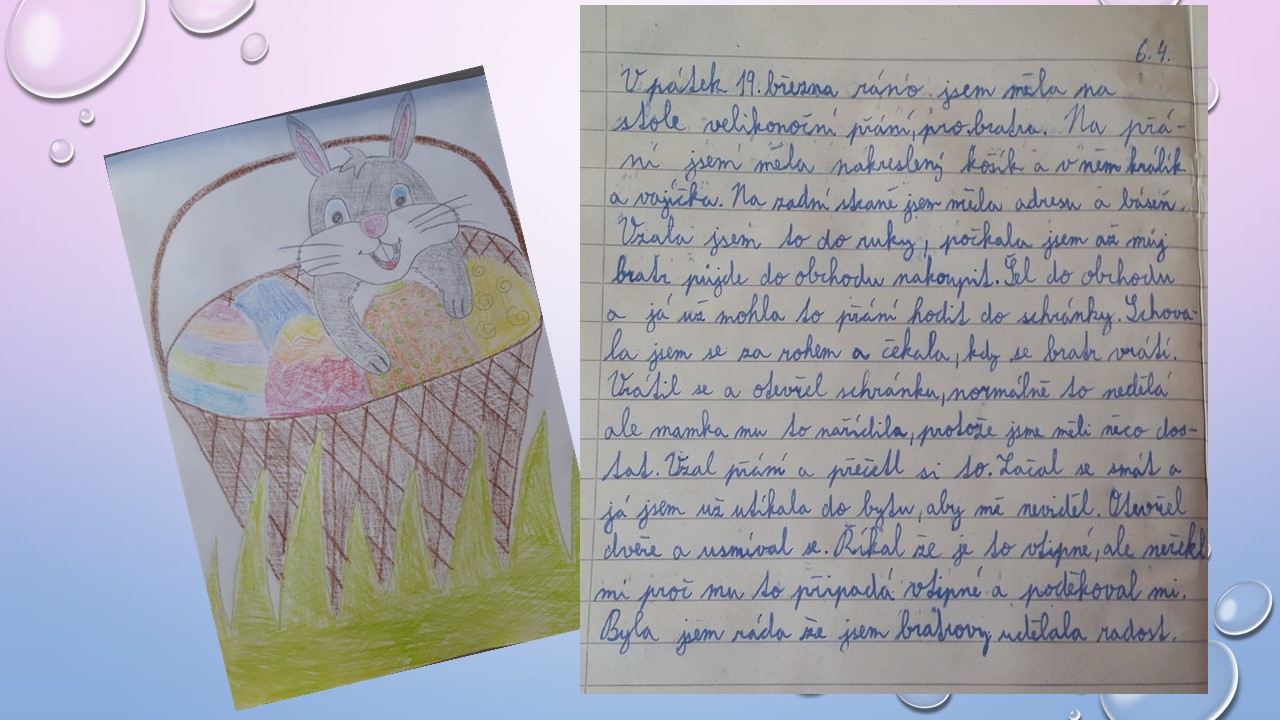 6.4.
V pátek 19. března ráno jsem měla na
stole velikonoční přání, pro bratra. Na přá-
ní jsem měla nakreslený košík a v něm králík
a vajíčka. Na zadní straně jsem měla adresu a báseň.
Vzala jsem to do ruky, počkala jsem až můj
bratr půjde do obchodu nakoupit. Šel do obchodu
a já už mohla to přání hodit do schránky. Schova-
la jsem se za rohem a čekala, kdy se bratr vrátí.
Vrátil se a otevřel schránku, normálně to nedělá
ale mamka mu to nařídila, protože jsme měli něco dos-
tat. Vzal přání a přečetl si to. Začal se smát a
já jsem už utíkala do bytu, aby mě neviděl. Otevřel
dveře a usmíval se. Říkal že je to vtipné, ale neřekl
mi proč mu to připadá vtipné a poděkoval mi.
Byla jsem ráda že jsem bratrovy udělala radost.